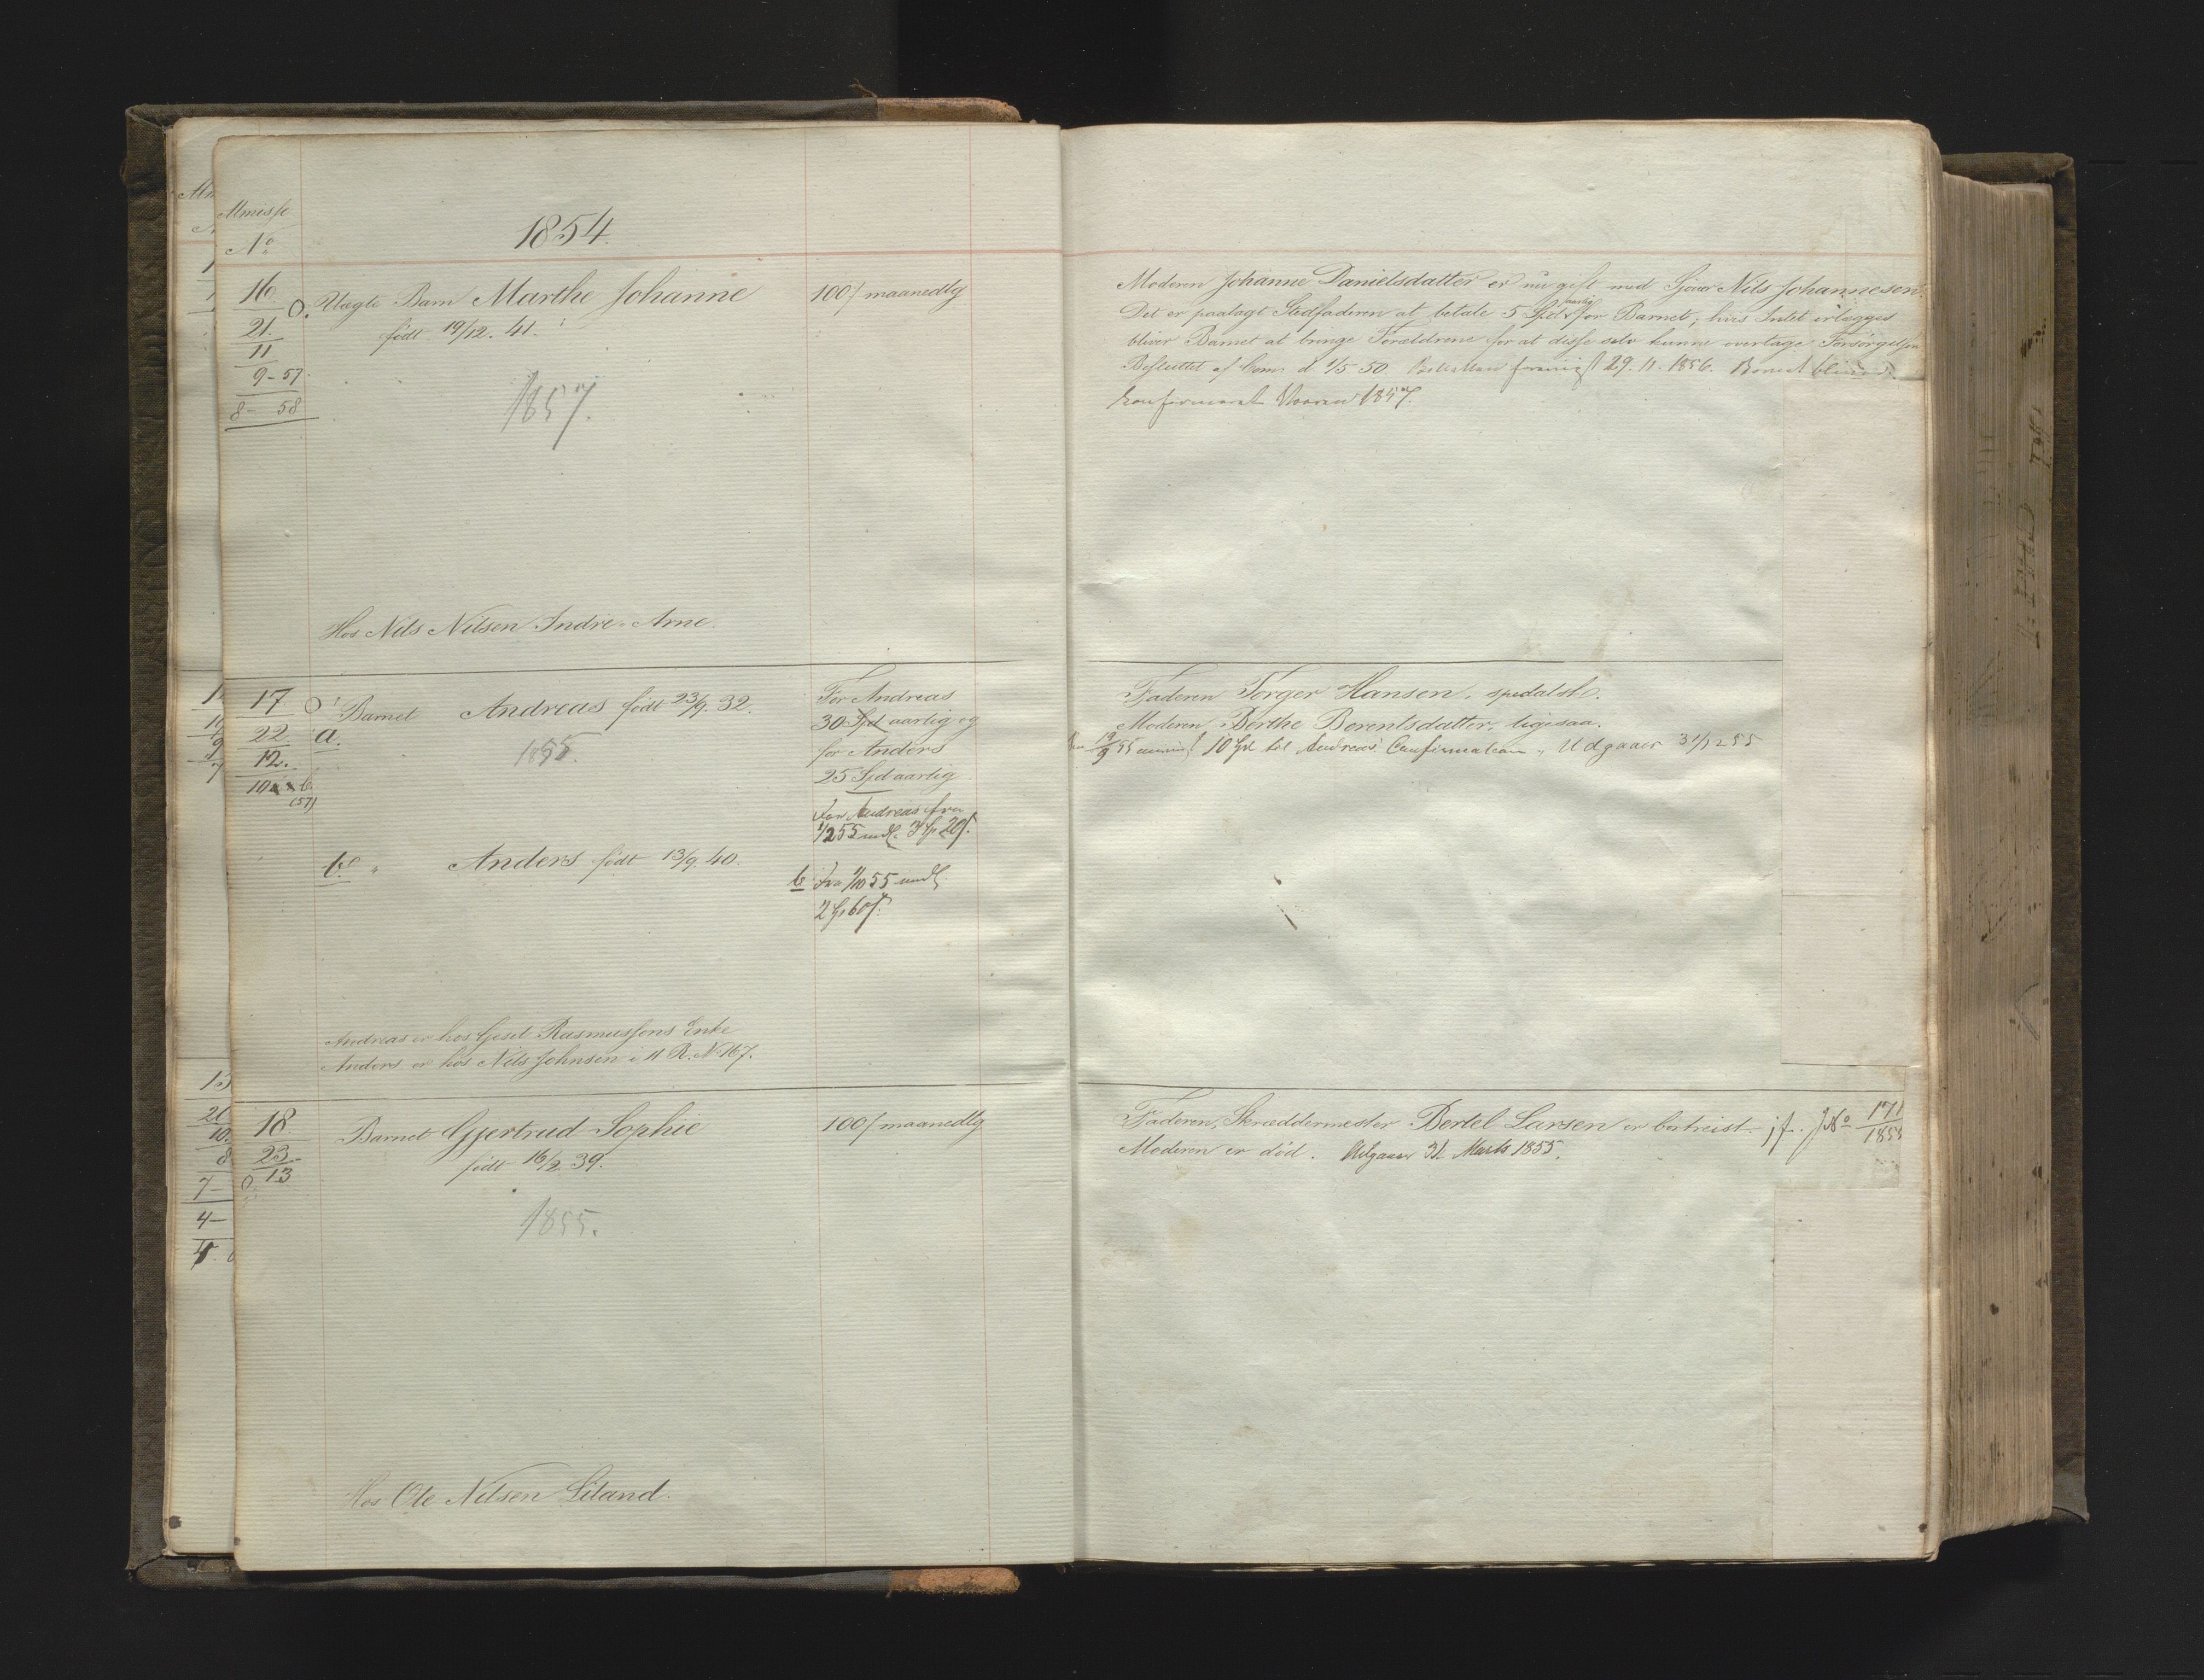 Almisse
No
1854.
16
21.
11
9-57
8-58
Uægte Barn Marthe Johanne
født 19/12. 41.
1857.
100/ maanedlg
Hos Nils Nilsen Indre-Arne.
17
22
12.
10
(57)
a.
Barnet Andreas født 23/9. 32.
1855.
b. " Anders født 13/9. 40.
For Andreas
30 Spd aarlig og
for Anders
25 Spd aarlig
For Andreas fra
1/2 55 mdl. 3 Sp 20/.
b Fra 1/10 55 mdl
2 Sp 60/.
Andreas er hos Gesel Rasmussens Enke
Anders er hos Nils Johnsen i 11 R. No 167.
18.
23
13
Barnet Gjertrud Sophie
født 16/2. 39.
1855.
100/ maanedlg
Hos Ole Nilsen Liland.
Moderen Johanne Danielsdatter er nu gift med Nils Johannesen.
Det er paalagt Stedfaderen at betale 5 Spd aarlig for Barnet; hvis Intet erlægges
bliver Barnet at bringe Forældrene for at disse selv kunne overtage Forsørgelsen
Besluttet af Com. d. 1/5 50. 29. 11. 1856. Barnet bliver
konfirmeret Vaaren 1857.
Faderen Torger Hansen, spedalsk.
Moderen, Berthe Berentsdatter, ligesaa.
12/9 55 10 Spd til Andreas' Confirmation. Udgaaer 31/12 55
Faderen, Skræddermester Bertel Larsen er bortreist jf. JNo 171/1855
Moderen er død. Udgaaer 31 Marts 1855.